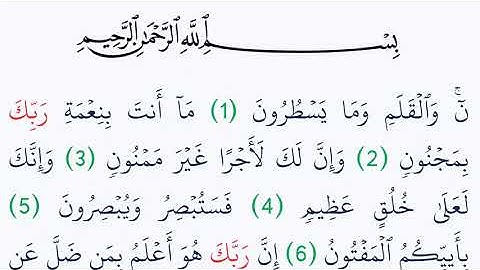 بِسْمِ ٱللَّهِ ٱلرَّحْمَٰنِ ٱلرَّحِيمِ
نٓۚ وَٱلْقَلَمِ وَمَا يَسْطُرُونَ (1) مَآ أَنتَ بِنِعْمَةِ رَبِّكَ
بِمَجْنُونٖ (2) وَإِنَّ لَكَ لَأَجْرًا غَيْرَ مَمْنُونٖ (3) وَإِنَّكَ
لَعَلَىٰ خُلُقٍ عَظِيمٖ (4) فَسَتُبْصِرُ وَيُبْصِرُونَ (5)
بِأَييِّكُمُ ٱلْمَفْتُونُ (6) إِنَّ رَبَّكَ هُوَ أَعْلَمُ بِمَن ضَلَّ عَن